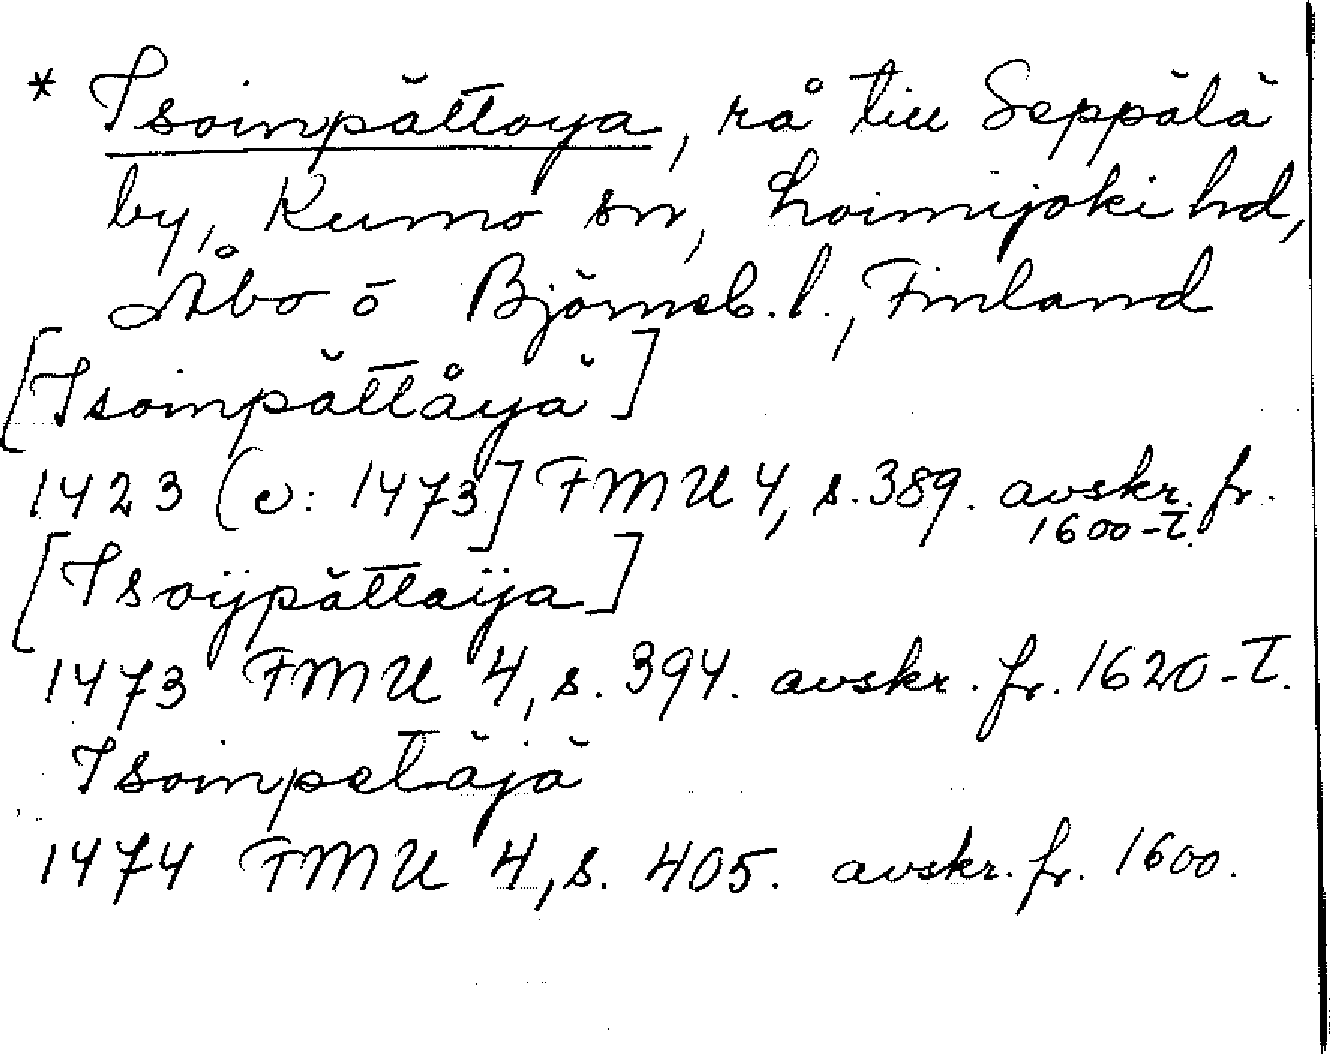 * Isoinpättoya, rå till Seppälä
by, Kumo sn, Loimijoki hd,
Åbo o Björneb. l., Finland
[Isoinpättåyä]
1423 (ɔ: 1473] FMU 4, s. 389. avskr. fr.
1600-t.
[Isoijpättaija]
1473 FMU 4, s. 394. avskr. fr. 1620-t.
Isoinpetäjä
1474 FMU 4, s. 405. avskr. fr. 1600.